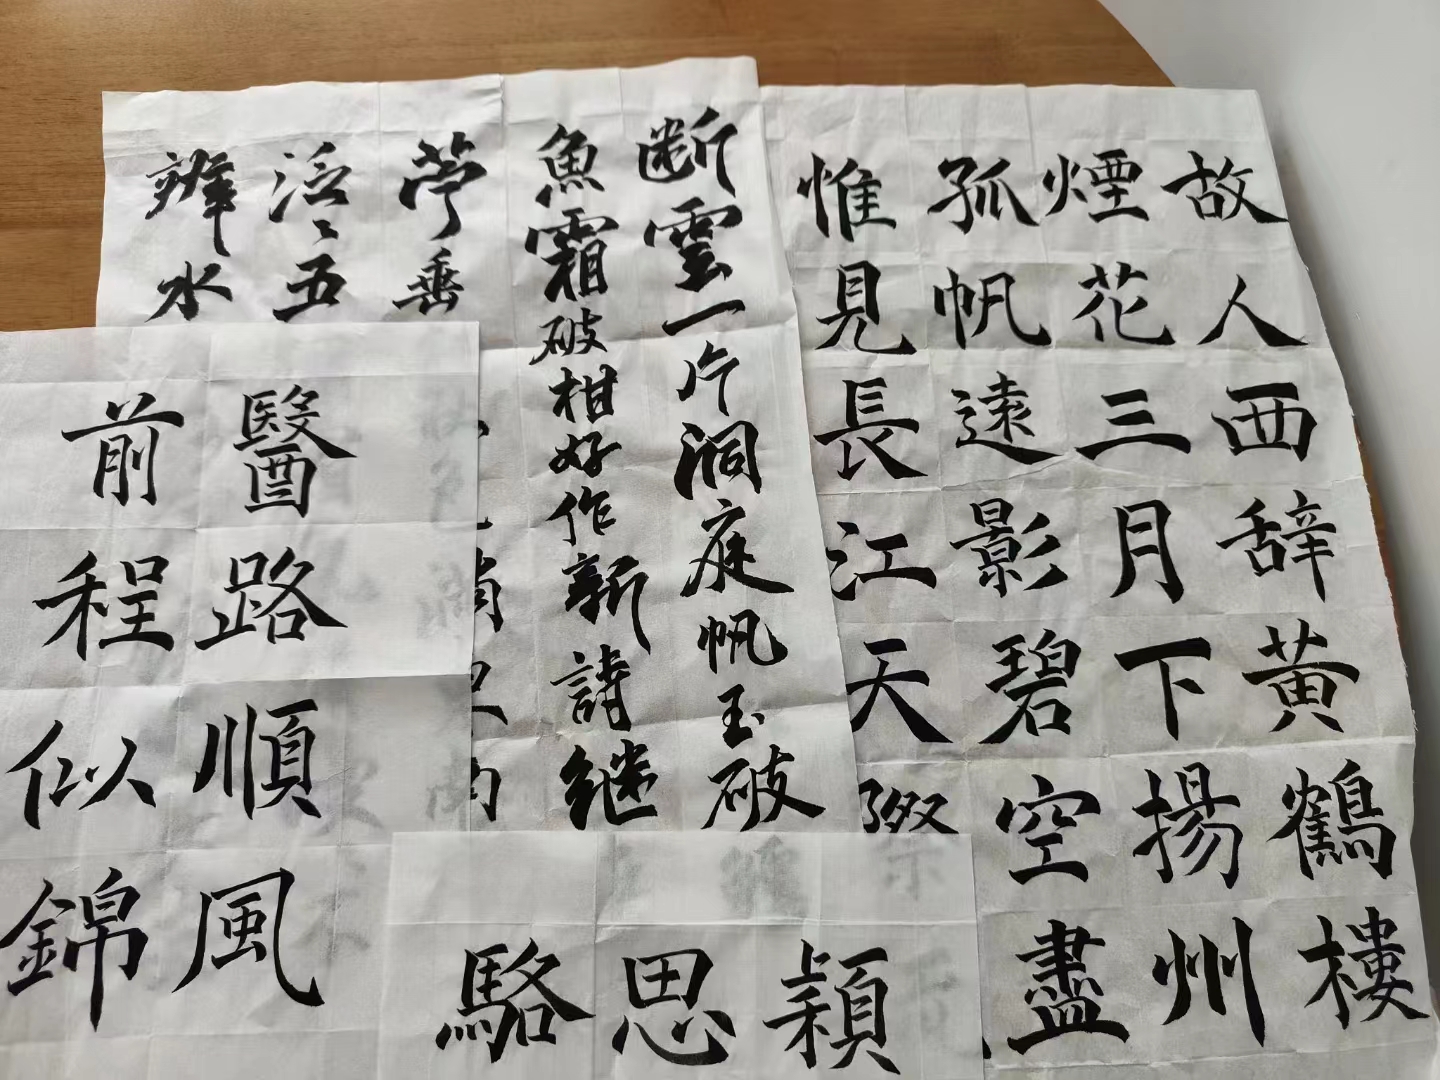 故人西辞黄鶴樓
煙花三月下揚州
孤帆遠影碧空盡
惟見長江天際
断雲一片洞庭帆玉破
魚霜破柑好作新詩継
苧垂
泛〻五
辨水
醫路順風
前程似錦
駱思穎